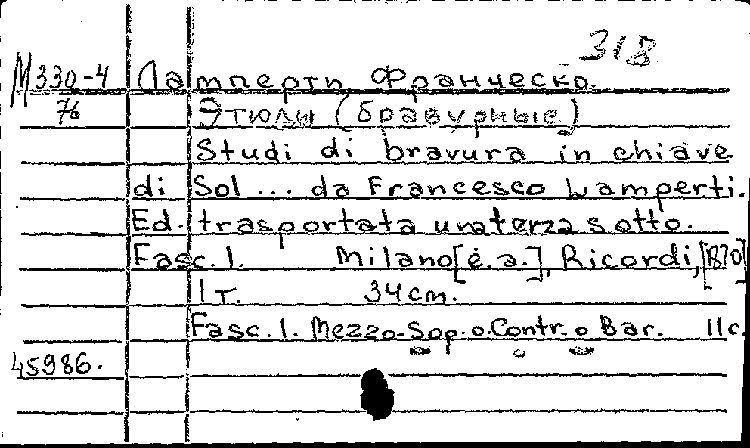 318
М330-4 Ламперти Франческо.
76 Этюды (бравурные)
Studi di bravura in chiave
di Sol ... da Francesco Lamperti.
Ed. trasportata una terza sotto.
Fasc. 1. Milano [é.a.], Ricordi, [1870]
1 т. 34 cm.
Fasc. 1. Mezzo-Sop. o. Contr. o Bar. 11 c.
45986.